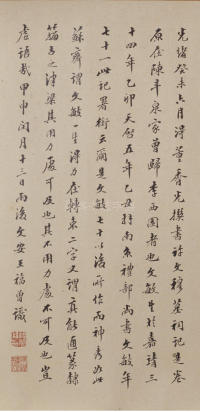 光緒癸未六月得董香光撰書許文穆墓祠記墨卷
原在陳半泉家曾歸李西園者也文敏生於嘉靖三
十四年乙卯天啟五年乙丑轉南京禮部尚書文敏年
七十一此記署銜云爾是文敏七十以後所作而神秀如此
蘇齋謂文敏一生得力在轉束二字又謂真能通篆隸
籀古之津梁其用力處可及也其不用力處不可及也豈
虛語哉甲申閏月十三日雨後文安王福曾識